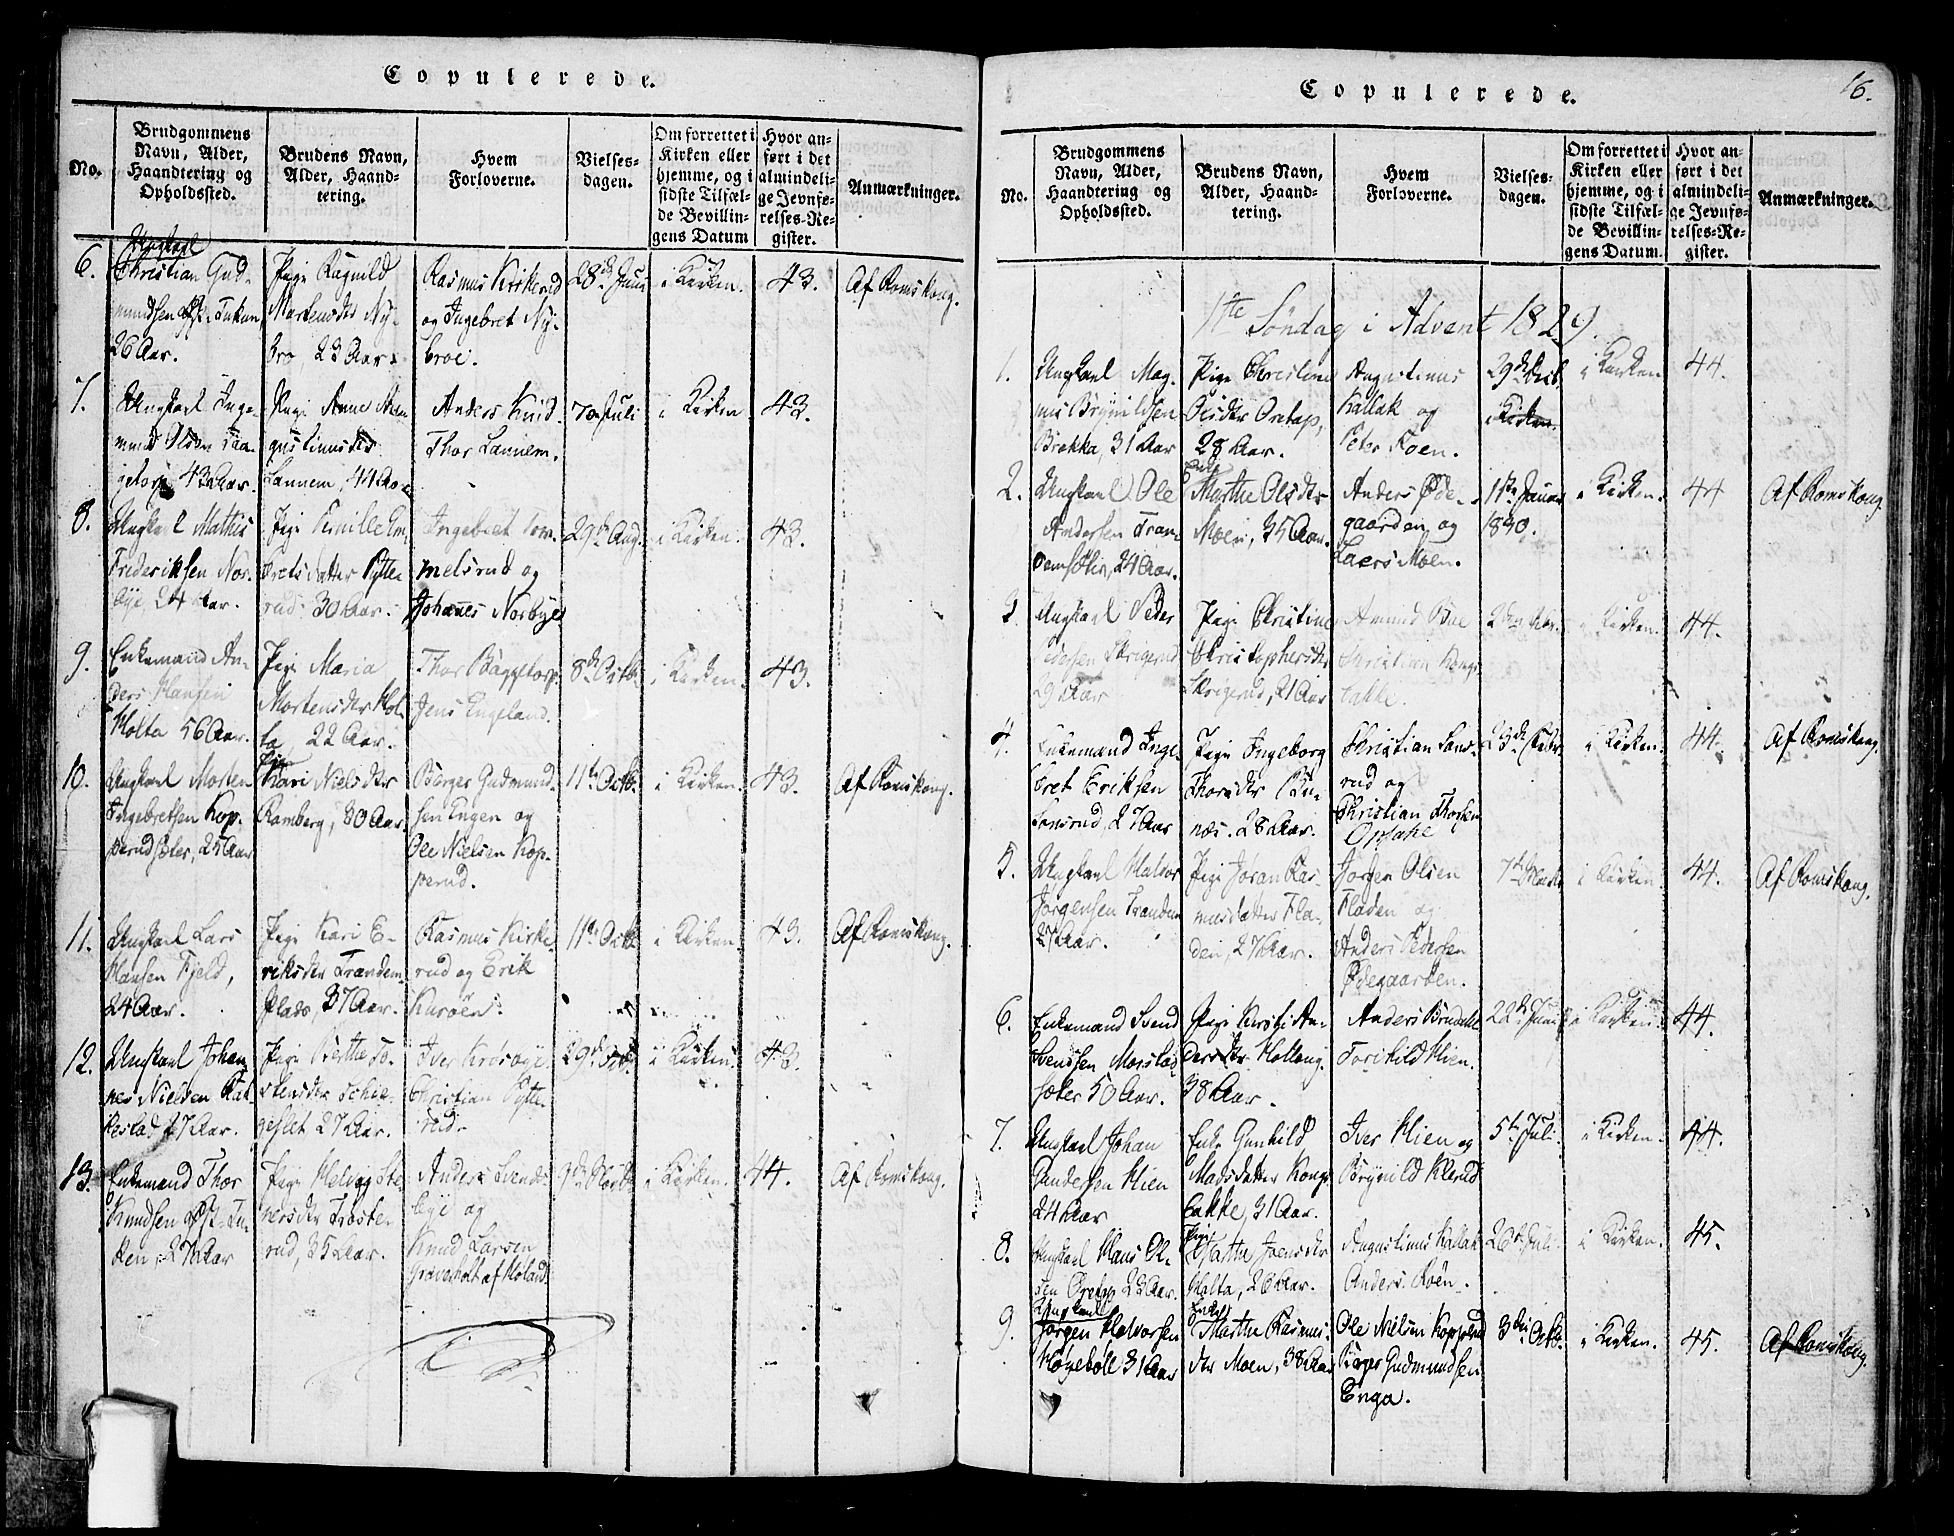 Copulerede.
No.
Brudgommens
Navn, Alder,
Haandtering og
Opholdssted.
Brudens Navn,
Alder, Haand-
tering.
Hvem
Forloverne.
Vielses-
dagen.
Om forrettet i
Kirken eller
hjemme, og i
sidste Tilfæl-
de Bevillin-
gens Datum
Hvor an-
ført i det
almindeli-
ge Jevnfø-
relses-Re-
gister.
Anmærkninger.
6.
Ungkarl
Christian Gud-
mundsen
26 Aar.
Pige Ragnild
Martensdtr Ny-
bro, 23 Aar.
Rasmus Kirkerud
og Ingebret Ny-
broe.
28de Juni
i Kirken.
43.
Af Romskoug.
7.
Ungkarl Inge-
mund Olsen
43 Aar.
Pige Anne
gustinusdtr
Lannem, 44 Aar
Anders
Thor Lannem.
7de Juli
i Kirken
43.
8.
Ungkarl Mathis
Frederiksen Nor-
bye, 24 Aar.
Pige Pernille Em-
bretsdatter Pytte-
rud 30 Aar.
Ingebret Tom-
melsrud og
Johannes Norbye
29de Aug.
i Kirken.
43.
9.
Enkemand An-
ders Hansen
Holta 56 Aar.
Pige Maria
Mortensdtr Hol-
ta, 22 Aar.
Thor Baggetorp.
Jens Engeland.
8de Octb.
i Kirken.
43.
10.
Ungkarl Morten
Ingebretsen Kop-
perudsæter, 25 Aar
Pige
Kari Nielsdtr
Ramberg, 30 Aar.
Børger Gudmund-
sen Engen og
Ole Nielsen Kop-
perud.
11te Octb.
i Kirken.
43.
Af Romskoug.
11.
Ungkarl Lars
Hansen Fjeld,
24 Aar.
Pige Kari E-
riksdtr Trandem-
plads, 37 Aar.
Rasmus Kirke-
rud og Erik
Kuröen.
11te Octb.
i Kirken
43.
Af Romskoug.
12.
Ungkarl Johan-
nes Nielsen Rak-
kestad 27 Aar.
Pige Berthe To-
stensdtr
27 Aar.
Iver Krosbye
Christian Pytte-
rud.
29de Octb.
i Kirken.
43.
13.
Enkemand Thor
Knudsen
27 Aar
Pige Helvig Ste-
nersdtr Troste-
rud, 35 Aar.
Anders Svends-
bye og
Knud Larsen
Gravemoet af Høland.
i Kirken.
44.
Af Romskoug.
Copulerede.
16.
No.
Brudgommens
Navn, Alder,
Haandtering og
Opholdssted.
Brudens Navn,
Alder, Haand-
tering.
Hvem
Forloverne.
Vielses-
dagen.
Om forrettet i
Kirken eller
hjemme, og i
sidste Tilfæl-
de Bevillin-
gens Datum.
Hvor an-
ført i det
almindeli-
ge Jevnfø-
relses-Re-
gister.
Anmærkninger.
1te Söndag i Advent 1829.
1.
Ungkarl Mag-
nus Brynildsen
Brekka, 31 Aar
Pige Christine
Olsdtr Öretap,
28 Aar.
Augustinus
Kallak og
Peter Roen.
29de Decb.
i Kirken
44.
2.
Ungkarl Ole
Andersen Tran-
demsæter, 24 Aar.
Enke
Marthe Olsdtr
Moen, 35 Aar.
Anders Øde-
gaarden og
Laers Moen.
1ste Januar
1830.
i Kirken.
44
Af Romskoug.
3.
Ungkarl Peder
Pedersen Skrigerud
29 Aar
Pige Christine
Christophersdtr
Skrigerud, 21 Aar
Amund Bue
Christian Kongs-
bakke.
i Kirken.
44.
4.
Enkemand Inge-
bret Eriksen
Sensrud, 27 Aar
Pige Ingeborg
Thorsdtr Bu-
næs. 28 Aar.
Christian Sens-
rud og
Christian Thorsen
Opsahe
23de Febr.
i Kirken.
44.
Af Romskoug.
5.
Ungkarl Halvor
Jörgensen Trandem
27 Aar.
Pige Jöran Ras-
musdatter Fla-
den, 27 Aar.
Jörgen Olsen
Fladen og
Anders Pedersen
Ødegaarden.
7de Marts
i Kirken.
44.
Af Romskoug.
6.
Enkemand Svend
Svensen
sæter 50 Aar.
Pige Kirsti An-
dersdtr Kollang.
38 Aar.
Anders
Torkild Hien.
22de Juni
i Kirken.
44.
7.
Ungkarl Johan
Andersen Hien
24 Aar
Enke Gunhild
Madsdatter Kongs-
bakke, 31 Aar.
Iver Hien og
Brynild Klerud
5te Juli.
i Kirken.
44.
8.
Ungkarl Hans Ol-
sen Öretap 23 Aar.
Pige
Marthe Joensdtr
Holta, 26 Aar.
Augustinus Kallak
Anders Roën.
26de Juli
i Kirken.
45.
9.
Ungkarl
Jørgen Halvorsen
Høgeböll 31 Aar
Enke
Marthe Rasmus-
dtr Moen, 38 Aar
Ole Nielsen Kopperud
Børger Gudmundsen
Enga.
3die Octb.
i Kirken.
45.
Af Romskoug.